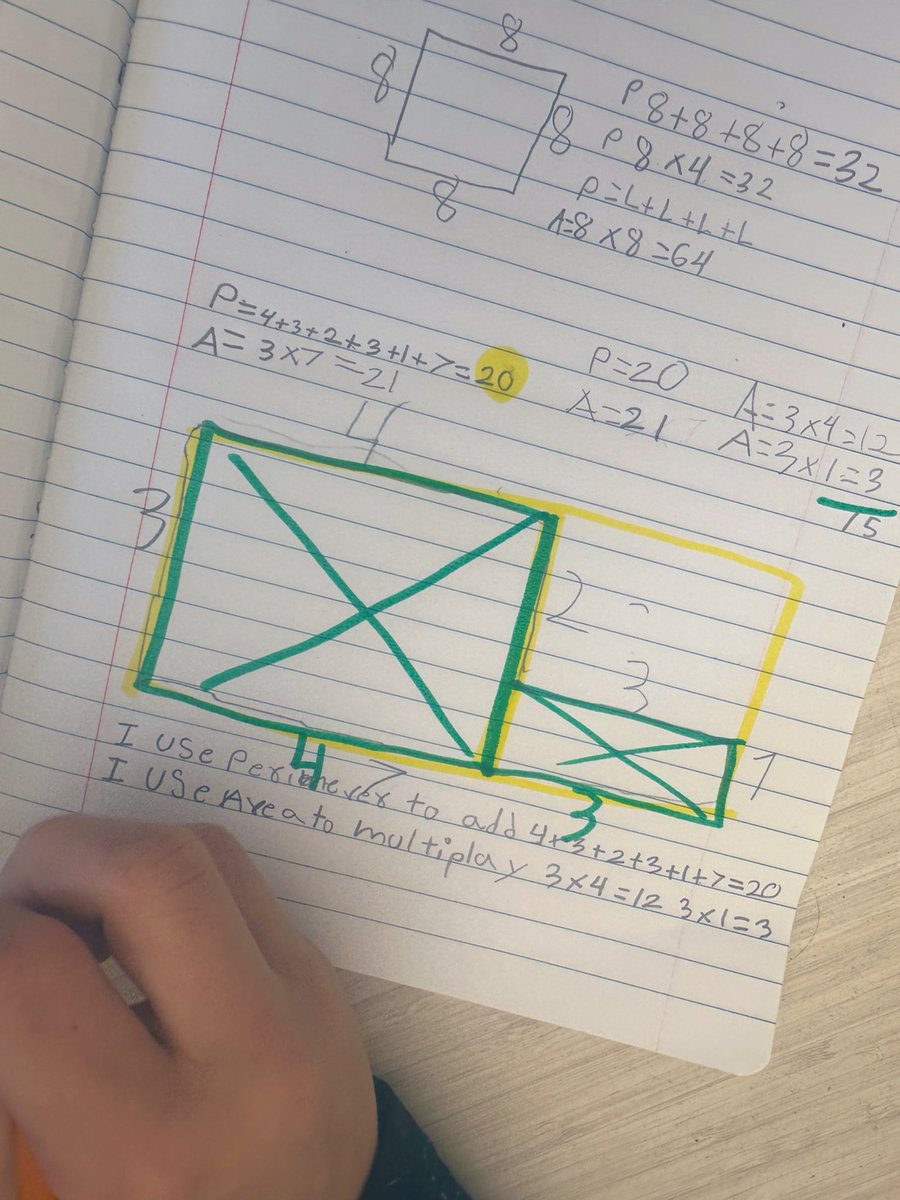 8
8
8
8
P 8+8+8+8=32
P 8×4=32
P=L+L+L+L
A=8×8=64
P=4+3+2+3+1+7=20
A=3×7=21
P=20
A=21
A=3×4=12
A=3×1=3
15
4
3
2
3
1
4
7
3
I use Perimever to add 4+3+2+3+1+7=20
I use Area to multiplay 3×4=12 3×1=3